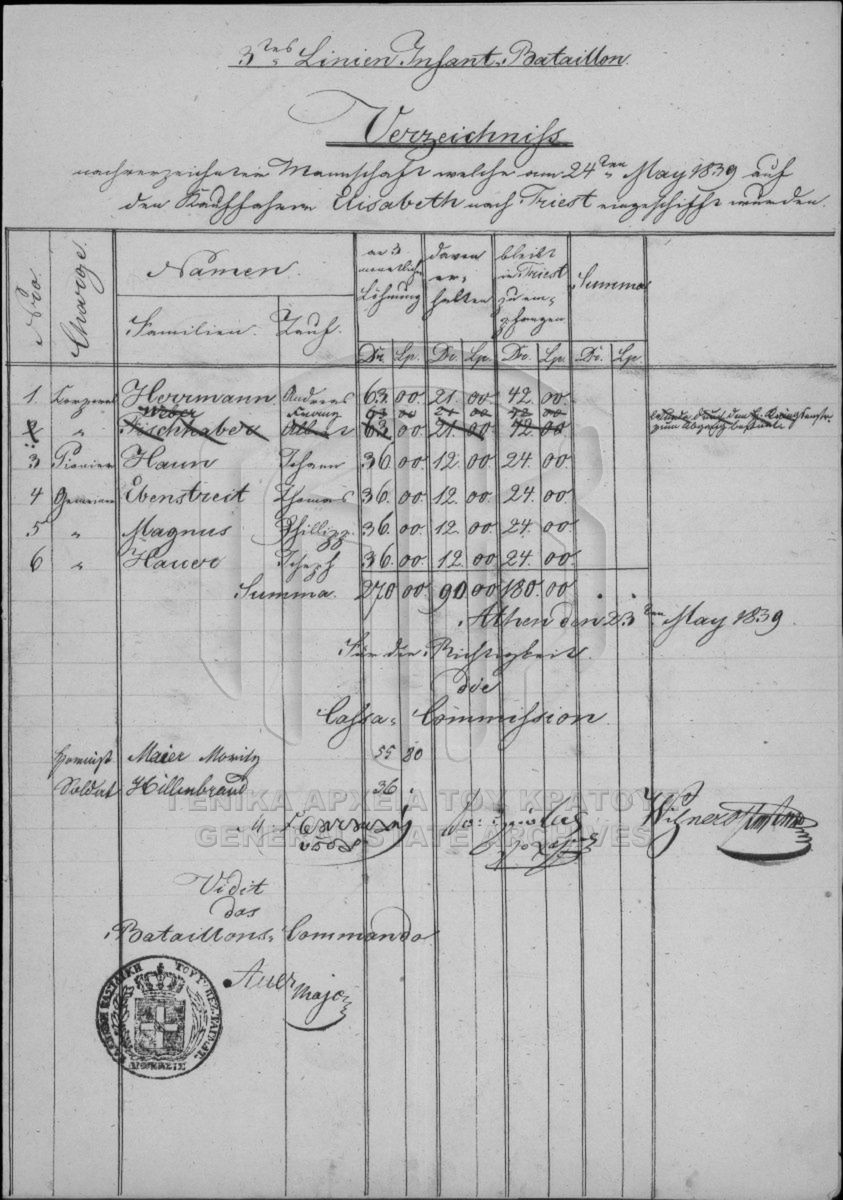 3tes Linien Infant. Bataillon.
Verzeichniss
nachverzeichneter Mannschaft welche am 24ten May 1839 auf
den Kauffahrer Elisabeth nach Triest eingeschifft wurden.
Nro. Charge. Namen. an 3 monatlicher Löhnung davon erhalten bleibt in Triest zu empfangen Summa
Familien. Tauf.
Dr. Lp. Dr. Lp. Dr. Lp. Dr. Lp.
1. Herrmann Andreas 63. 00. 21. 00. 42. 00.
Weber 63 00 21 00 42 00
2 " Fischhaber 63. 00. 21. 00. 42. 00
3 Pionier Haun Johann 36. 00. 12. 00. 24. 00.
4 Gemeiner Ebenstreit Thomas 36. 00. 12. 00. 24. 00.
5 " Magnus Phillipp. 36. 00. 12. 00. 24. 00.
6 " Hauer Joseph 36. 00. 12. 00. 24. 00.
Summa. 270 00. 90. 00 180. 00.
Athen den 23ten May 1839.
Für die Richtigkeit.
die
Cassa-Commission
Maier Moritz 55 80
Soldat Hillenbrand 36
ΓΕΝΙΚΑ ΑΡΧΕΙΑ ΤΟΥ ΚΡΑΤΟΥΣ
GENERAL STATE ARCHIVES
Vidit
das
Bataillons-Commando
Auer
Major